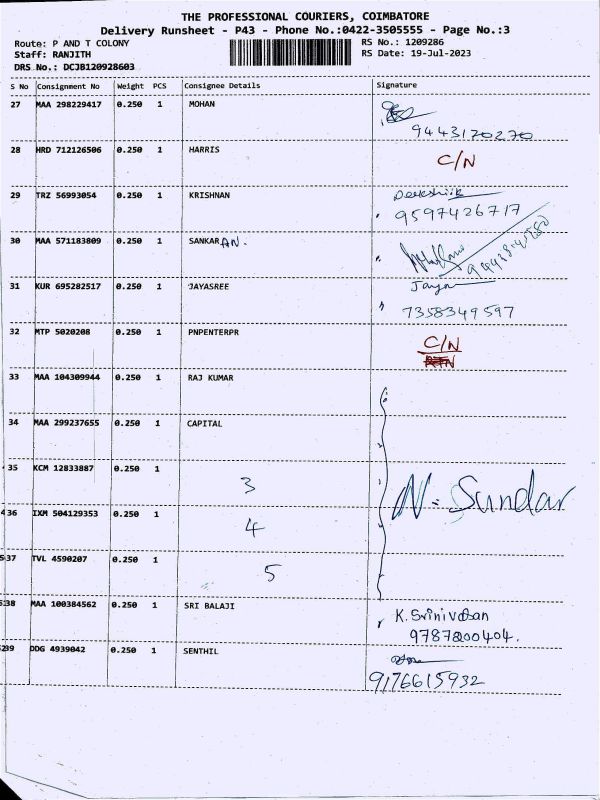 THE PROFESSIONAL COURIERS, COIMBATORE
Delivery Runsheet - P43 - Phone No.:0422-3505555 - Page No.:3
Route: P AND T COLONY
RS No.: 1209286
Staff: RANJITH
RS Date: 19-Jul-2023
DRS No.: DCJB120928603
S No Consignment No Weight PCS Consignee Details Signature
27 MAA 298229417 0.250 1 MOHAN
9443170270
28 HRD 712126506 0.250 1 HARRIS C/N
29 TRZ 56993054 0.250 1 KRISHNAN
9597426717
30 MAA 571183809 0.250 1 SANKARAN.
31 KUR 695282517 0.250 1 JAYASREE Jaya
7358349597
32 MTP 5020208 0.250 1 PNPENTERPR C/N
33 MAA 104309944 0.250 1 RAJ KUMAR
34 MAA 299237655 0.250 1 CAPITAL
35 KCM 12833887 0.250 1 3
N. Sundar
36 IXM 504129353 0.250 1 4
37 TVL 4590207 0.250 1 5
38 MAA 100384562 0.250 1 SRI BALAJI K. Srinivasan
9787200404.
39 DDG 4939042 0.250 1 SENTHIL
9176615932